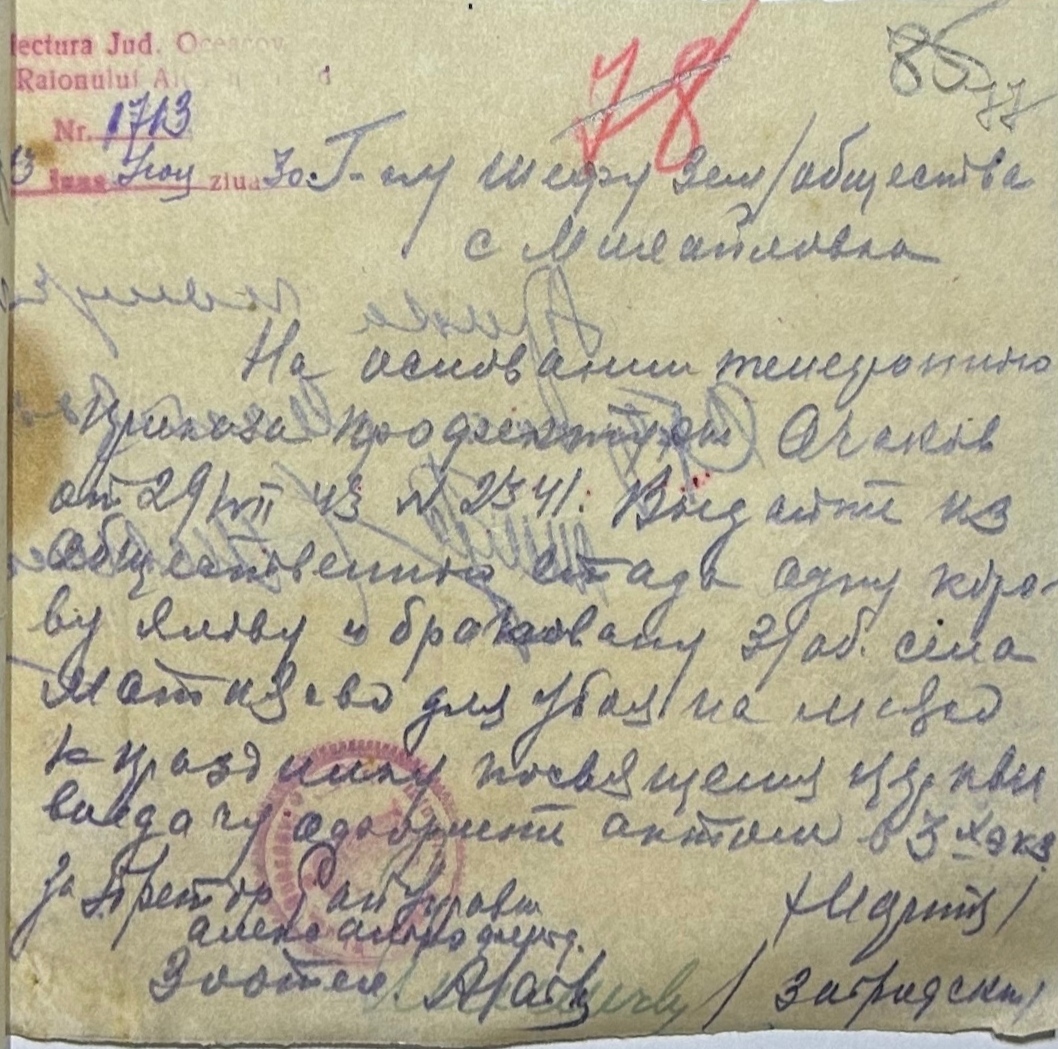 ectura Jud. Oceacov
Raionului Al d
Nr. 1713
3 luna Июл ziua 30.
78
85
77
Г-ну шефу зем/общества
с Михайловка
На основании телефонного
приказа профектуры Очаков
от 29/VII 43 № 2541. Выдайте из
общественного стада одну коро-
ву ялову и браковану З/об. села
Матиясово для убоя на мясо
к празднику посвящения церкви
выдачу одоормите актом в 3х экз
За Претор
Зоотех.